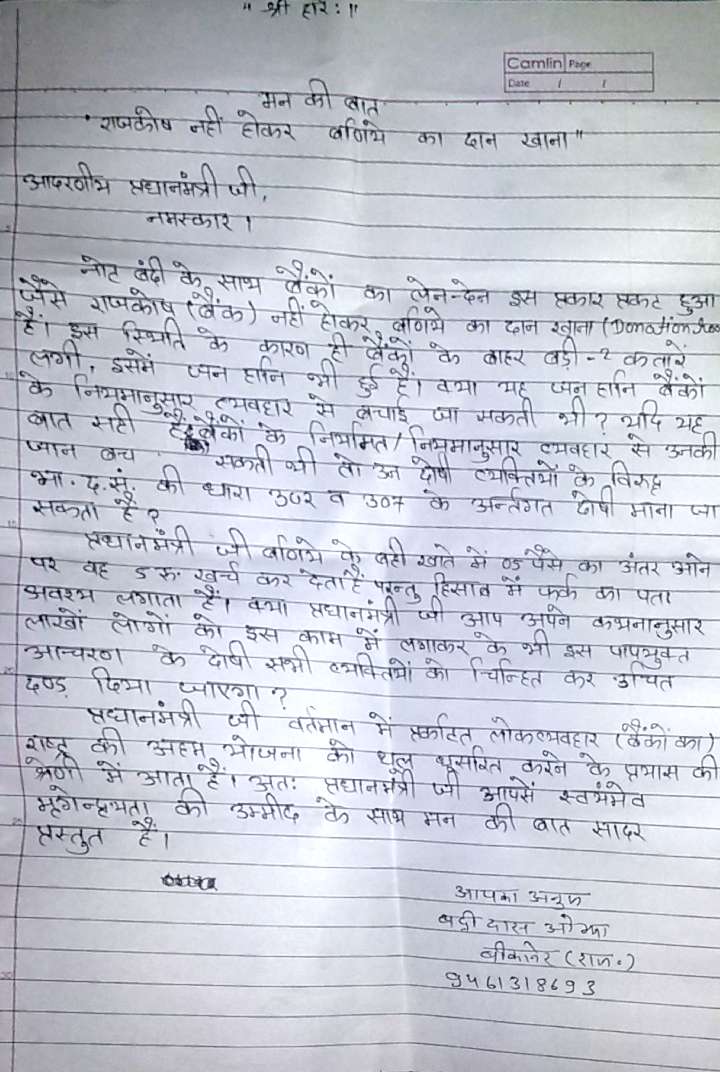 " श्री हरि : ॥
Camlin Page
Date / /
मन की बात
" राजकोष नहीं होकर बणिये का दान खाना "
आदरणीय प्रधानमंत्री जी,
नमस्कार ।
नोट बंदी के साथ बैंकों का लेन-देन इस प्रकार प्रकट हुआ
जैसे राजकोष (बैंक) नहीं होकर बणिये का दान खाना (Donation
हैं। इस स्थिति के कारण ही बैंकों के बाहर बड़ी-२ कतारें
लगी, इसमें जन हानि भी हुई है। क्या यह जन हानि बैंकों
के नियमानुसार व्यवहार से बचाई जा सकती थी ? यदि यह
बात सही है बैंकों के नियमित/नियमानुसार व्यवहार से उनकी
जान बच सकती थी तो उन दोषी व्यक्तियों के विरुद्ध
भा. द. सं. की धारा 302 व 307 के अर्न्तगत दोषी माना जा
सकता है ?
प्रधानमंत्री जी बणिये के बही खाते में 05 पैसे का अंतर आने
पर वह 5 रु. खर्च कर देता हैं परन्तु हिसाब में फर्क का पता
अवश्य लगाता हैं। क्या प्रधानमंत्री जी आप अपने कथनानुसार
लाखों लोगों को इस काम में लगाकर के भी इस पापयुक्त
आचरण के दोषी सभी व्यक्तियों को चिन्हित कर उचित
दण्ड़ दिया जाएगा ?
प्रधानमंत्री जी वर्तमान में प्रकटित लोकव्यवहार (बैंकों का)
राष्ट्र की अहम योजना को धुल धूसरित करने के प्रयास की
श्रेणी में आता हैं। अतः प्रधानमंत्री जी आपसें स्वयंमेव
मृगेन्द्रयता की उम्मीद के साथ मन की बात सादर
प्रस्तुत हैं।
आपका अनुज
बद्री दास ओझा
बीकानेर (राज.)
9461318693